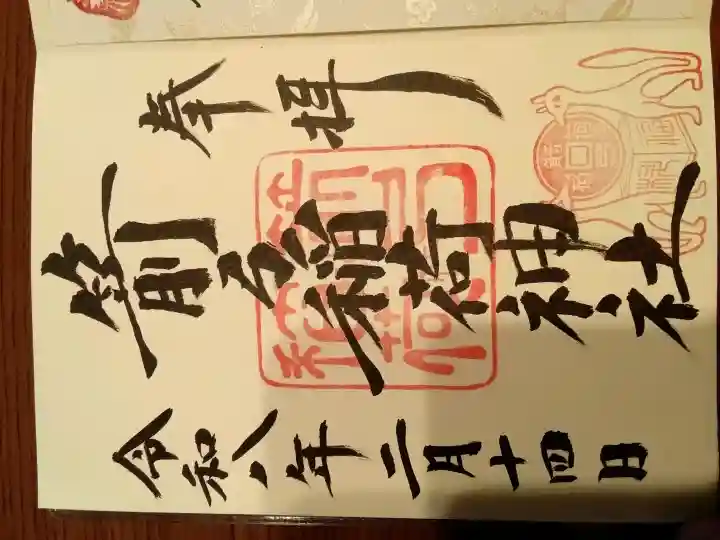 奉拝
箭弓稲荷神社
令和八年二月十四日